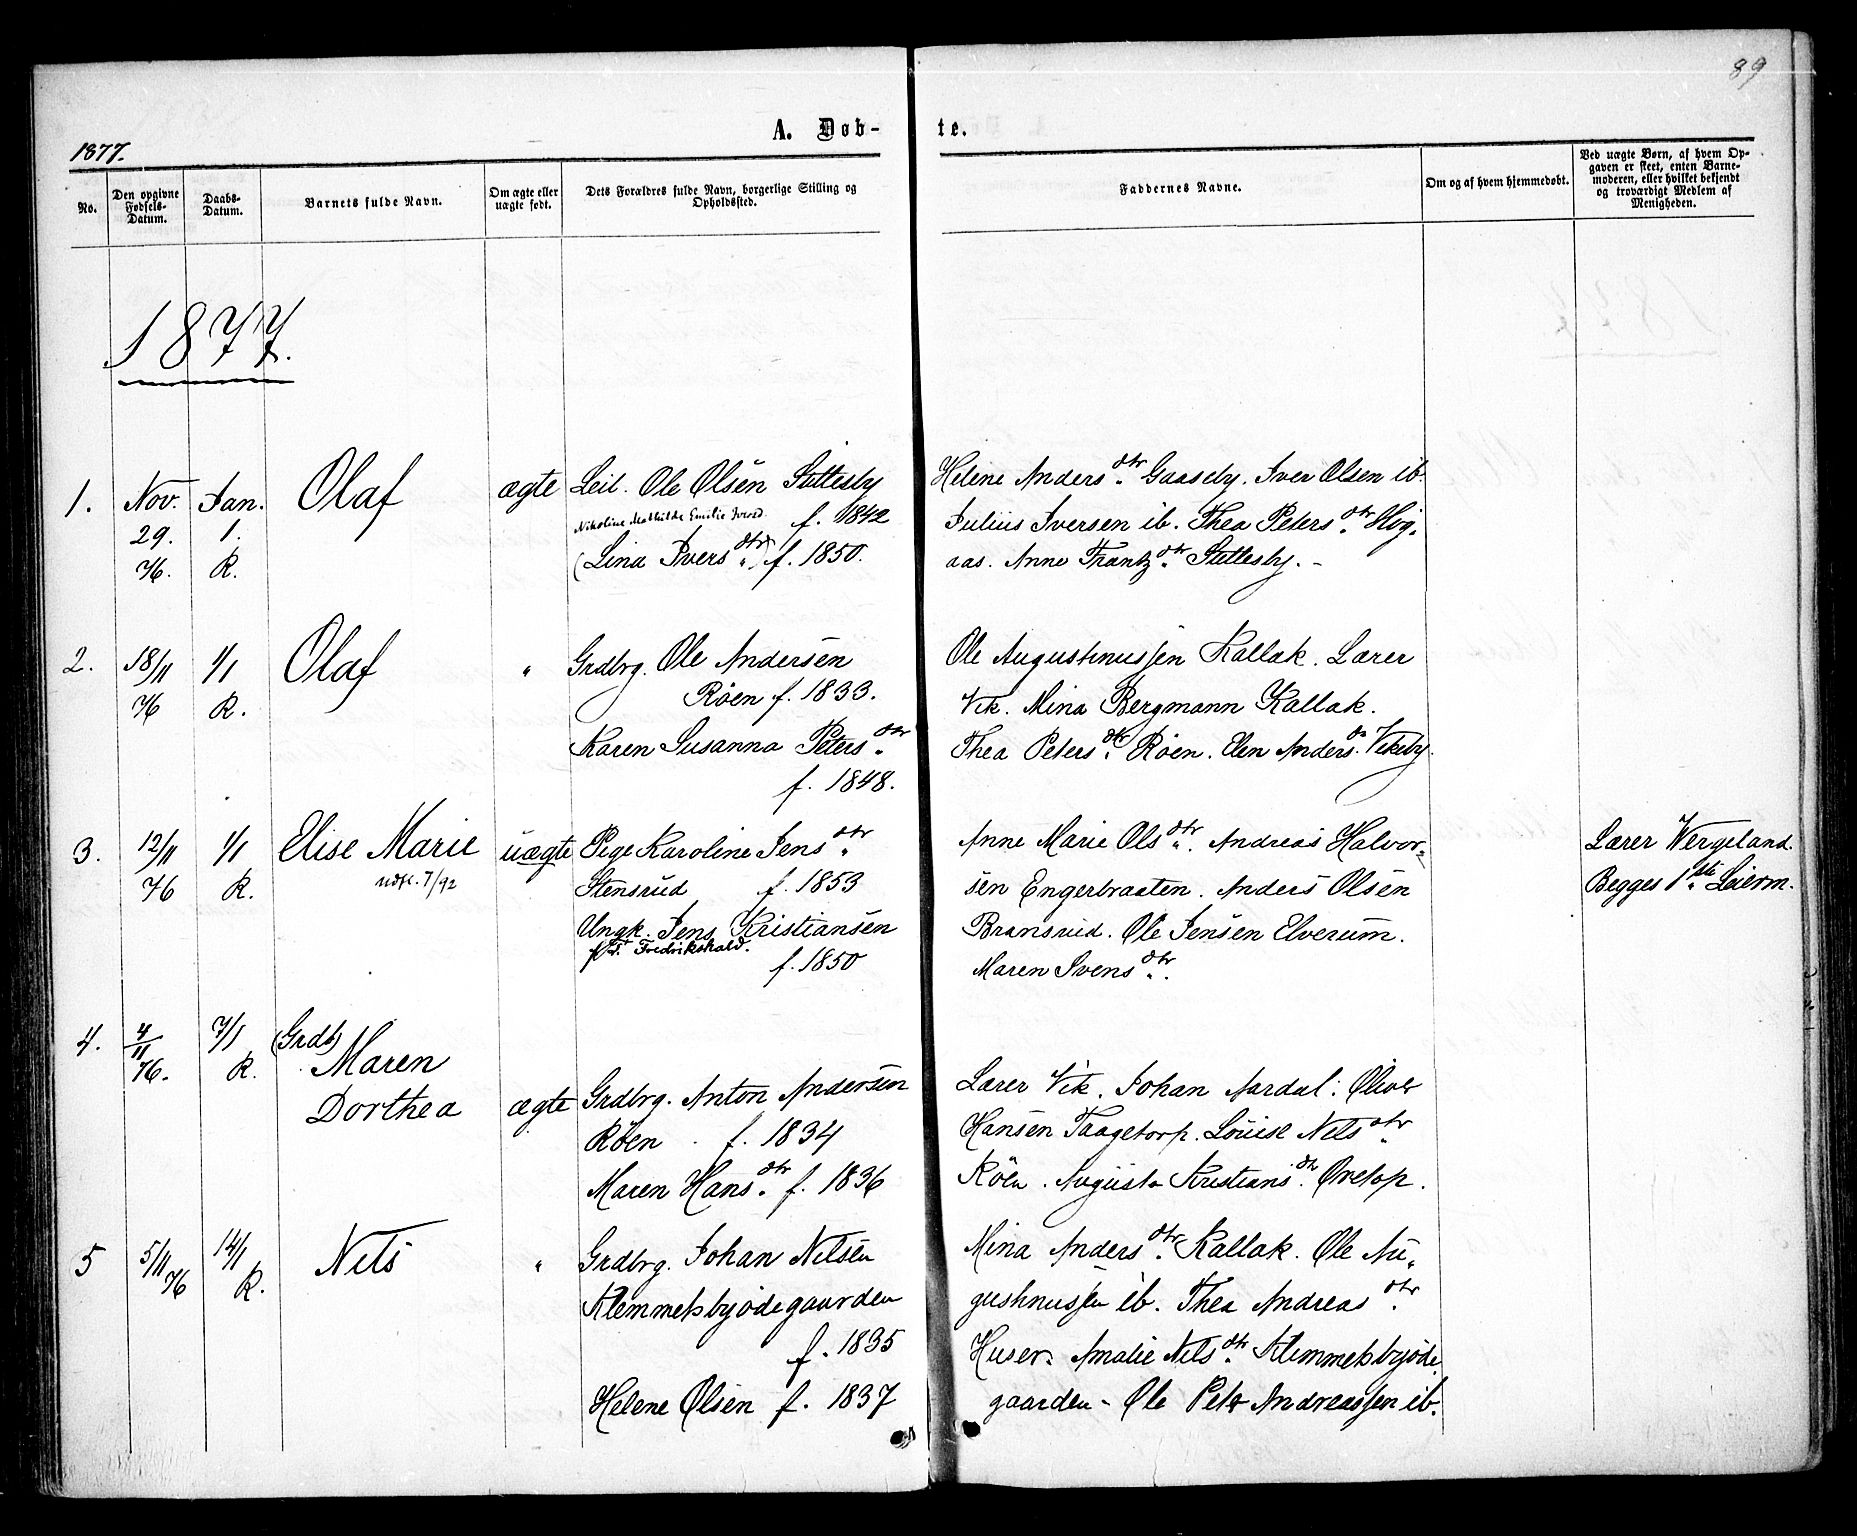 89
A. Døb-te.
1877.
No.
Den opgivne Fødsels-Datum.
Daabs-Datum.
Barnets fulde Navn.
Om ægte eller uægte født.
Dets Forældres fulde Navn, borgerlige Stilling og Opholdssted.
Faddernes Navne.
Om og af hvem hjemmedøbt.
Ved uægte Børn, af hvem Op-
gaven er skeet, enten Barne-
moderen, eller hvilket bekjendt
og troværdigt Medlem af
Menigheden.
1877.
1. Nov. 29. 76. Jan. 1. R. Olaf ægte
Leil. Ole Olsen Sletteby
f. 1842
Nikoline Mathilde Emilie Iversd.
(Lina Ivers dtr) f. 1850.
Helene Anders dtr Gaaseby. Iver Olsen ib.
Julius Iversen ib. Thea Peters dtr Høg-
aas. Anne Frantz dtr Sletteby. -
2. 18/11 76 1/1 R. Olaf "
Grdbrg. Ole Andersen
Røen f. 1833.
Karen Susanna Peters dtr
f. 1848.
Ole Augustinussen Kallak. Lærer
Vik. Mina Bergmann Kallak.
Thea Peters dtr Røen. Elen Anders d. Vikeby.
3. 12/11 76 1/1 R. Elise Marie uægte
udfl. 7/92
Pige Karoline Jens dtr
Stensrud f. 1853
Ungk. Jens Kristiansen
Fredrikshald.
f. 1850
Anne Marie Ols dtr. Andreas Halvor-
sen Engerbraaten. Anders Olsen
Bransrud. Ole Jensen Elverum.
Maren Svens dtr.
Lærer Wergeland.
Begges 1ste Leierm.
4. 4/11 76. 7/1 R. (Grdb)
Maren
Dorthea ægte
Grdbrg. Anton Andersen
Røen f. 1834
Maren Hans dtr f. 1836
Lærer Vik. Johan Aardal. Oliver
Hansen Taagetorp. Louise Nels dtr
Röen. Augusta Kristians dtr. Øvetop.
5 5/11 76 14/1 R. Nels "
Grdbrg. Johan Nelsen
Klemmetsbyødegaarden
f. 1835
Helene Olsen f. 1837
Mina Anders dtr Kallak. Ole Au-
gustinussen ib. Thea Andreas dtr.
Huser. Amalie Nels dtr Klemmetsbyøde
gaarden - Ole Petr Andreassen ib.